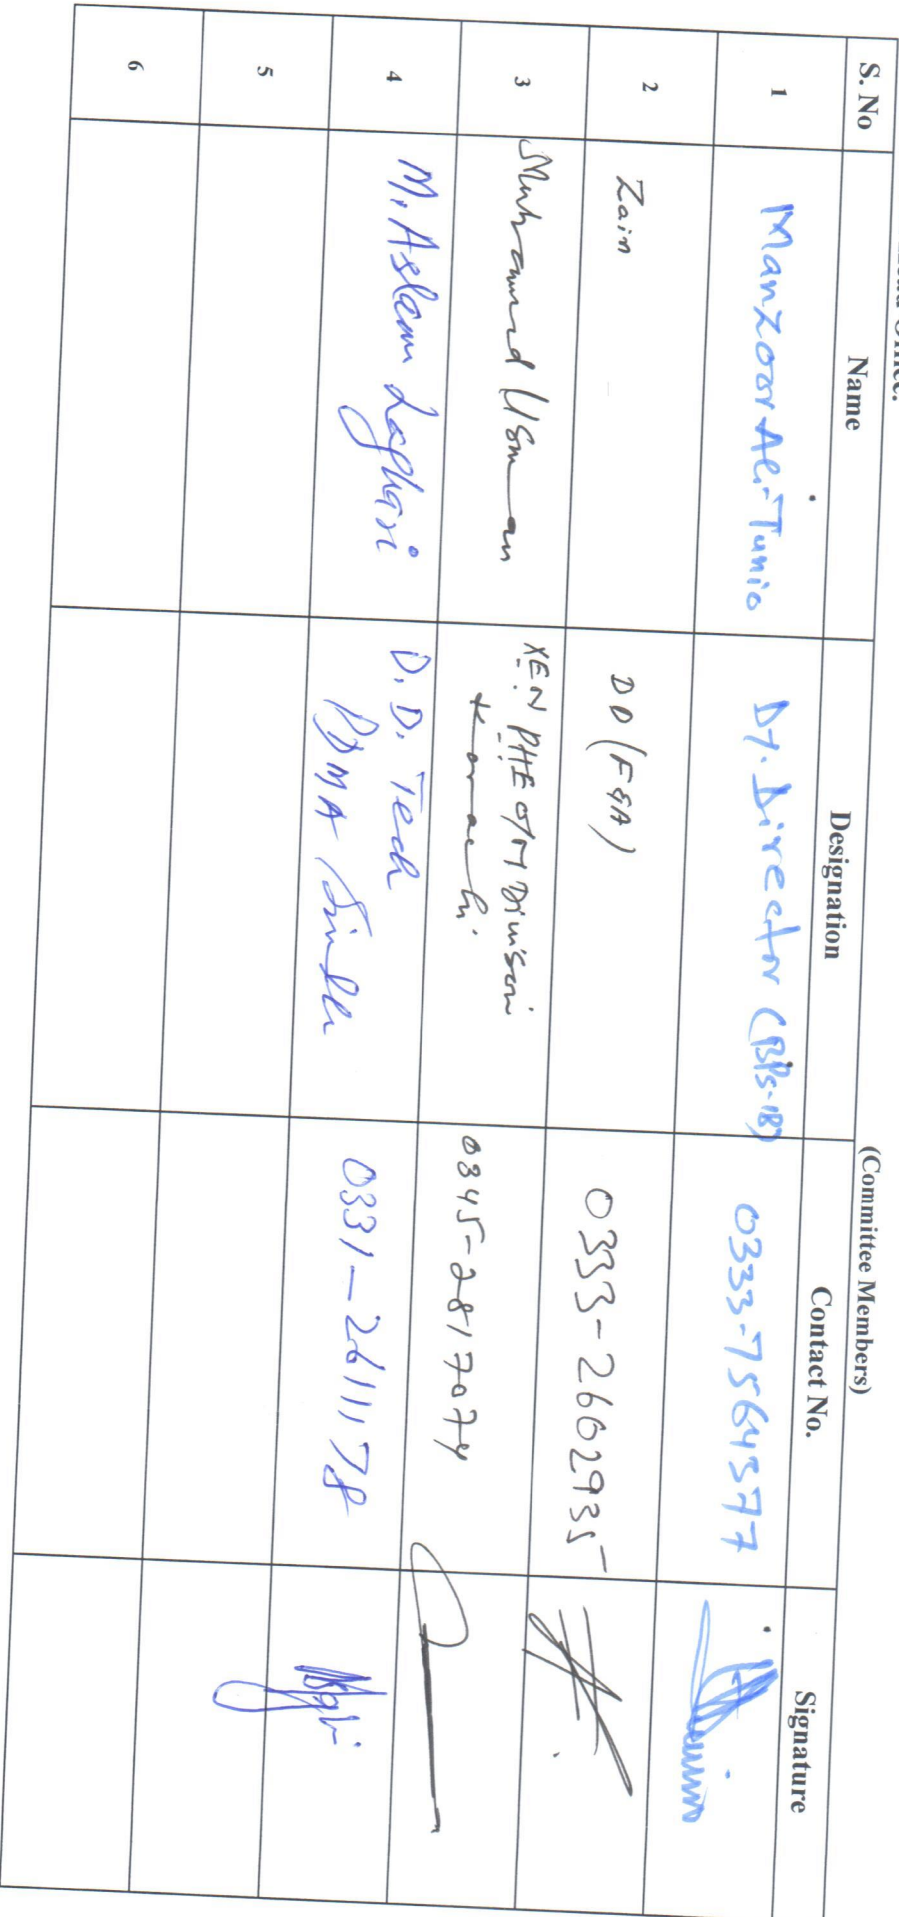 (Committee Members)
S. No Name Designation Contact No. Signature
1 Manzoor Ali Tunio Dy. Director (BPS-18) 0333-7564577
2 Zain DD (F&A) 0333-2602935
3 Muhammad Usman XEN PHE O/M Division 0345-2817074
Karachi
4 M. Aslam Laghari D. D. Tech 0331-2611178
PDMA Sindh
5
6